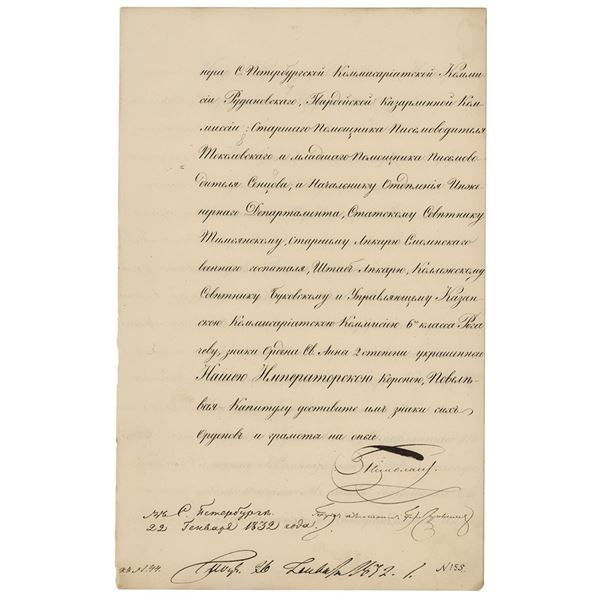 нера С. Петербургской Коммисаріатской Комми-
сіи Рудановскаго, Гвардейской Казарменной Ком-
миссіи: Старшаго Помощника Писмоводителя
Токоловскаго и младшаго Помощника Писмово-
дителя Сенцова, и Начальнику Отделенія Инже-
нернаго Департамента, Статскому Советнику
Тимлянскому, старшему Лекарю Смоленскаго
военнаго госпиталя, Штабъ Лекарю, Коллежскому
Советнику Буковскому и Управляющему Казан-
скою Коммисаріатскою Коммисіею 6го класса Рога-
чеву, знаки Ордена Св. Анны 2 степени украшенные
Нашею Императорскою Короною, Повеле-
вая Капитулу доставить имъ знаки сихъ
Орденовъ и грамоты на оные.
Николай.
въ С. Петербурге.
22 Генваря 1832 года.
26 1832. г.
N 155.